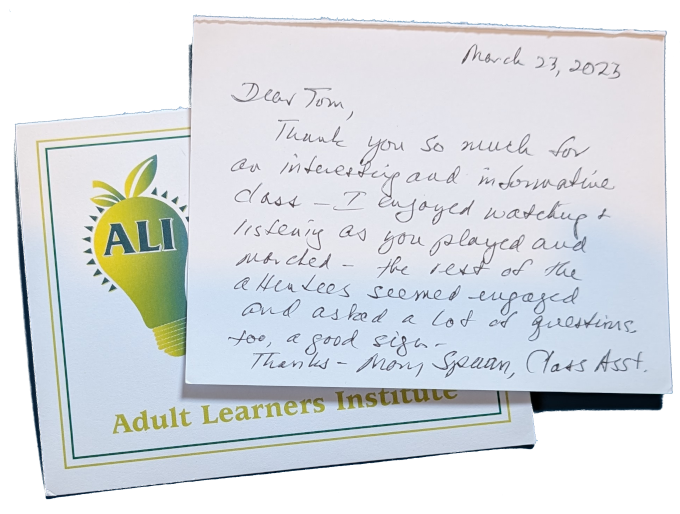 March 23, 2023
Dear Tom,
Thank you so much for
an interesting and informative
class – I enjoyed watching +
listening as you played and
marched – the rest of the
attendees seemed engaged
and asked a lot of questions
too, a good sign –
Thanks – Class Asst.
ALI
Adult Learners Institute